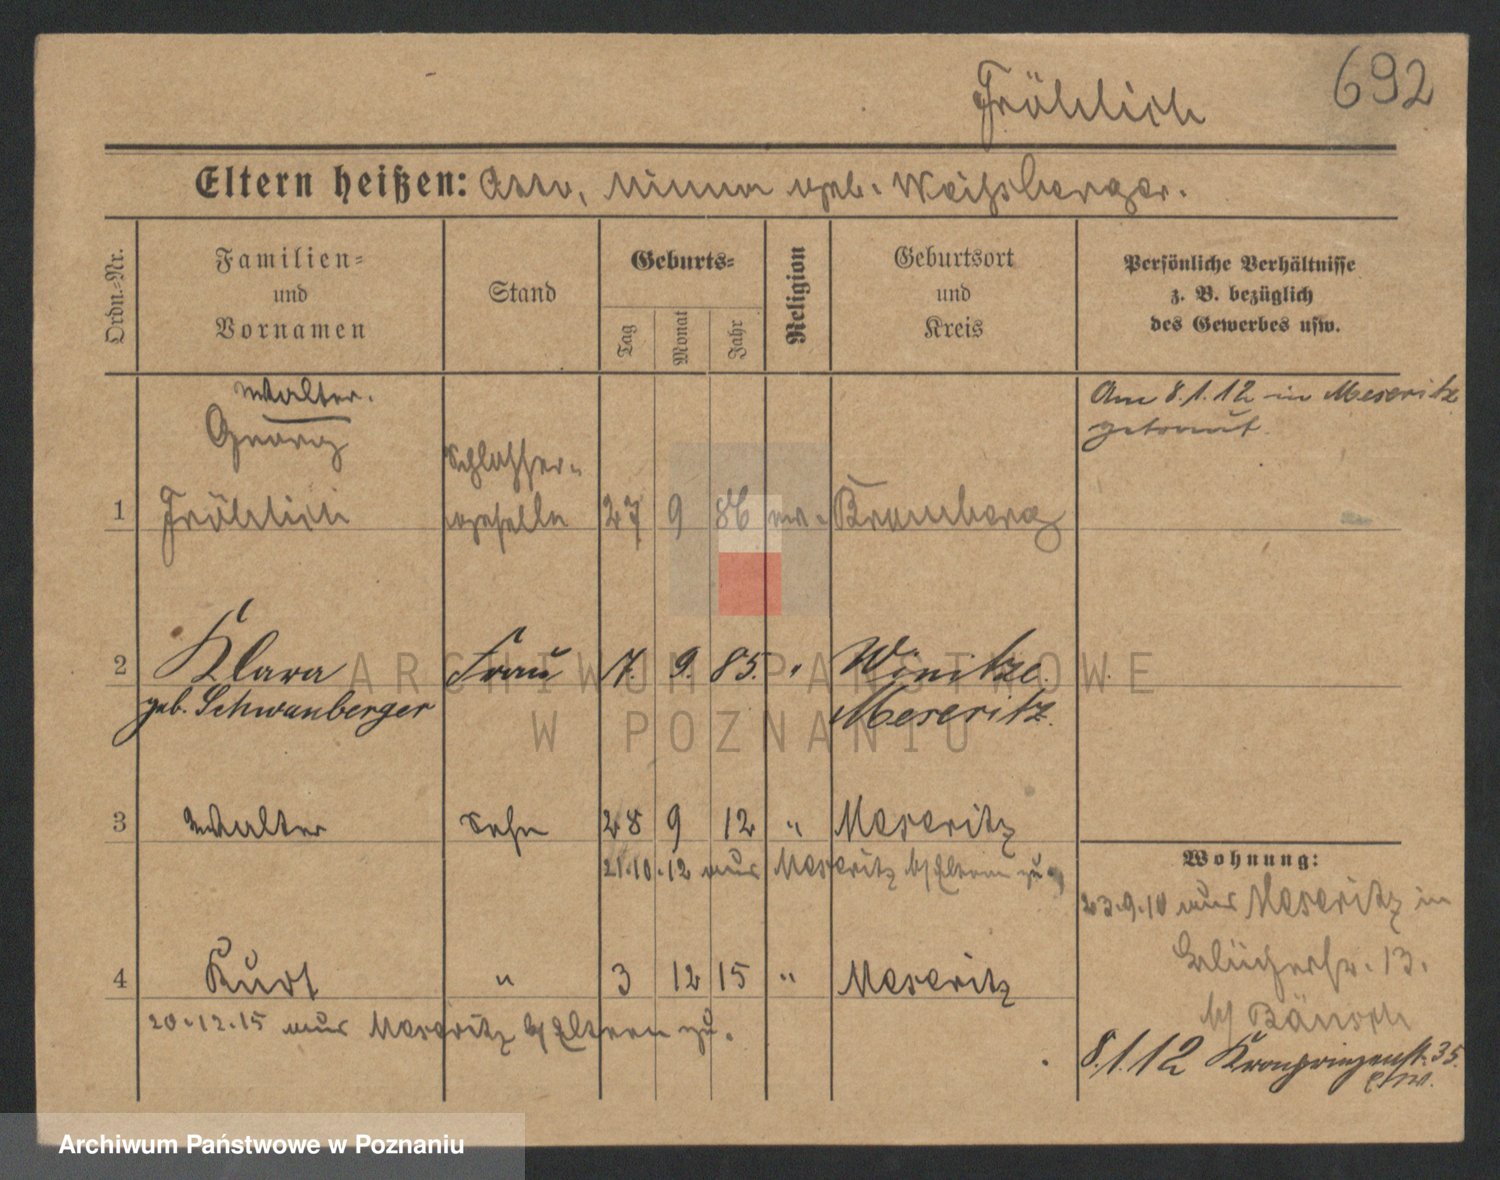 Fröhlich
692
Eltern heißen: Otto, Minna geb. Weißberger.
Ordn.-Nr.
Familien-
und
Vornamen
Stand
Geburts-
Tag
Monat
Jahr
Religion
Geburtsort
und
Kreis
Persönliche Verhältnisse
z. B. bezüglich
des Gewerbes usw.
Walter.
Georg
Am 8.1.12 in Meseritz
getraut.
Schlosser-
1 Fröhlich geselle 27 9 86 ev. Bromberg
2 Klara Frau 7. 9. 85. " Winitze.
geb. Schwanberger Meseritz.
3 Walter Sohn 28 9 12 " Meseritz
21.10.12 aus Meseritz b/Eltern zu.
Wohnung:
23.9.10 aus Meseritz in
Blücherstr. 13.
b/ Bänsch
8.1.12 Kronprinzenstr. 35.
4 Kurt " 3 12 15 " Meseritz
20.12.15 aus Meseritz b/Eltern zu.
ARCHIWUM PAŃSTWOWE
W POZNANIU
Archiwum Państwowe w Poznaniu